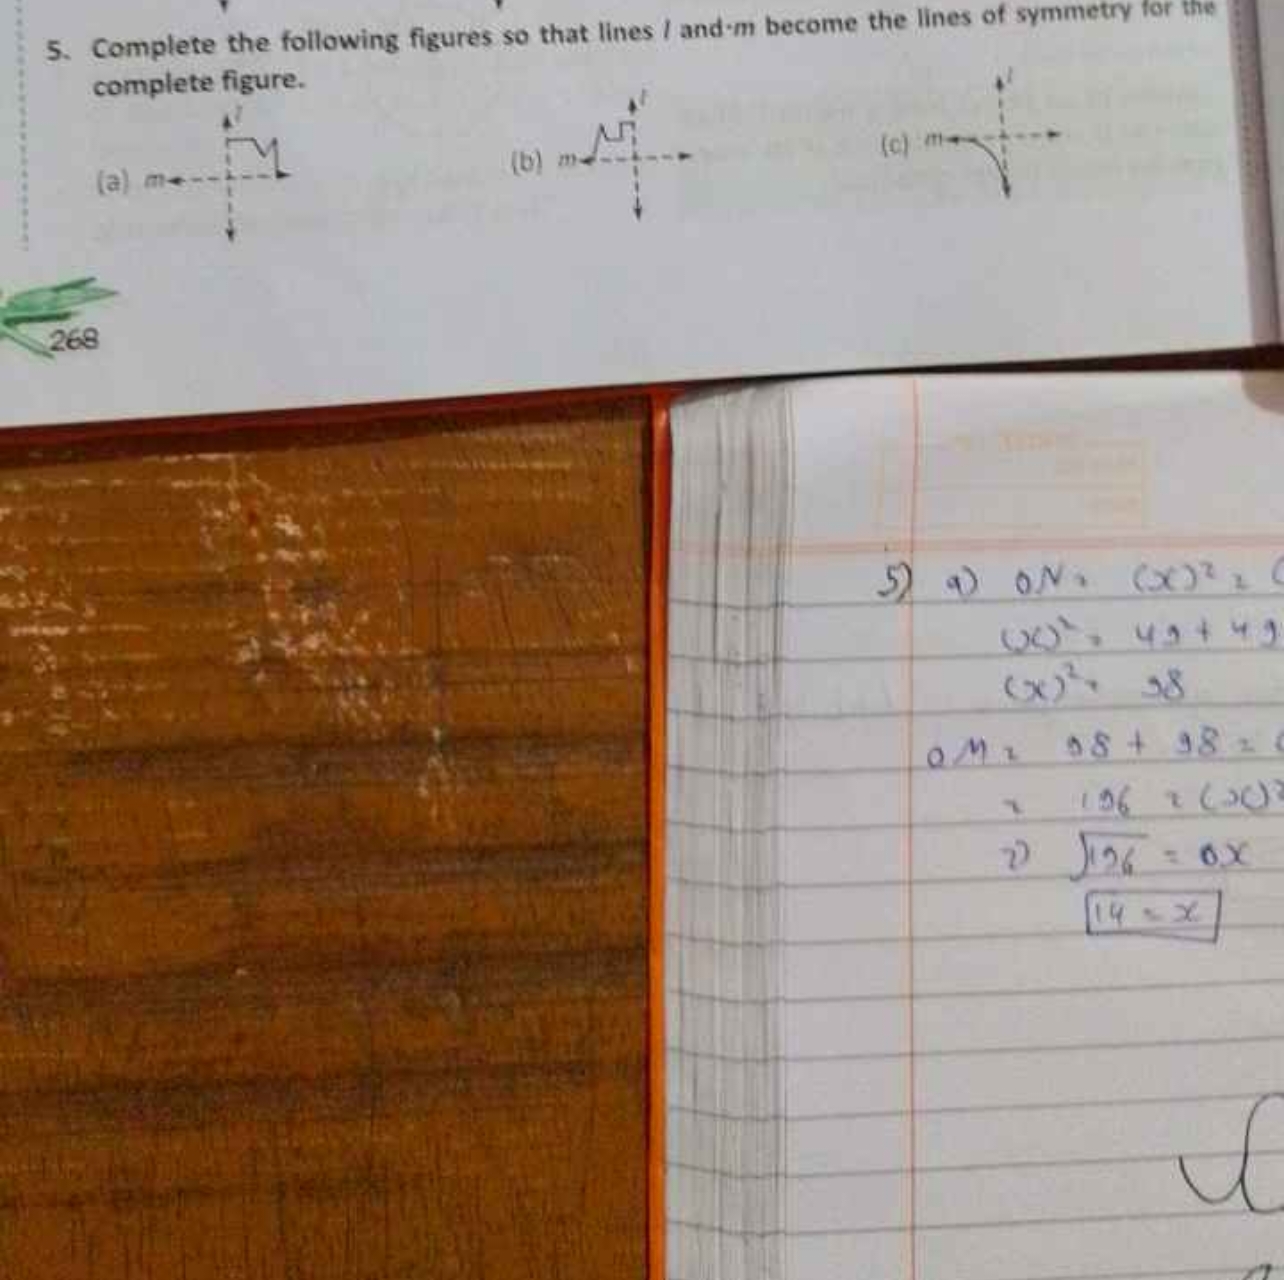 5. Complete the following figures so that lines l and m become the lines of symmetry for the
complete figure.
(a) m l
(b) m l
(c) m l
268
5) a) ON = (x)² = (
(x)² = 49 + 49
(x)² = 98
OM = 98 + 98 =
= 196 = (x)²
=) √196 = 0x
14 = x